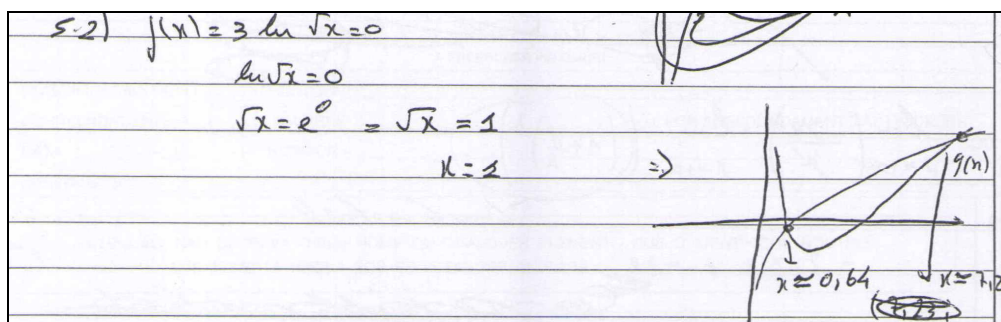 5.2) f(x) = 3 ln √x = 0
ln √x = 0
√x = e⁰ = √x = 1
x = 1 ⇒
g(x)
x ≃ 0,64
x ≃ 7,2